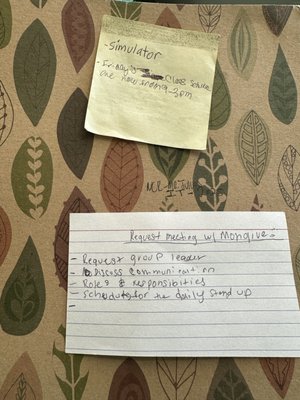 - Simulator
- Friday's Class
one hour ending 3pm
Request meeting w/ Monqive:
- Request group leader
- Discuss communication
- Roles & responsibities
- Schedule for the daily stand up
-